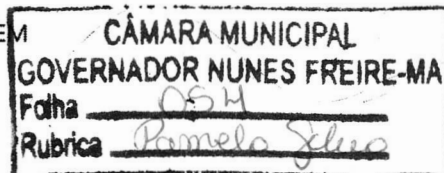 EM
CÂMARA MUNICIPAL
GOVERNADOR NUNES FREIRE-MA
Folha 054
Rubrica Pamela Silva